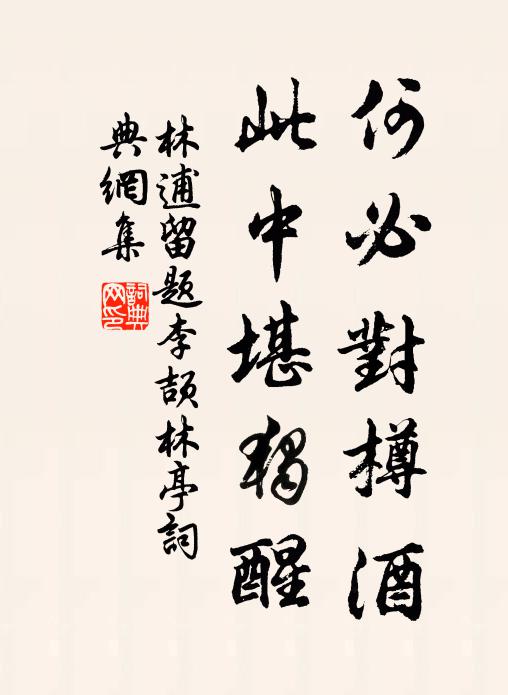 何必對樽酒
此中堪獨醒
林逋留题李頡林亭詞
典網集
詞典
网印